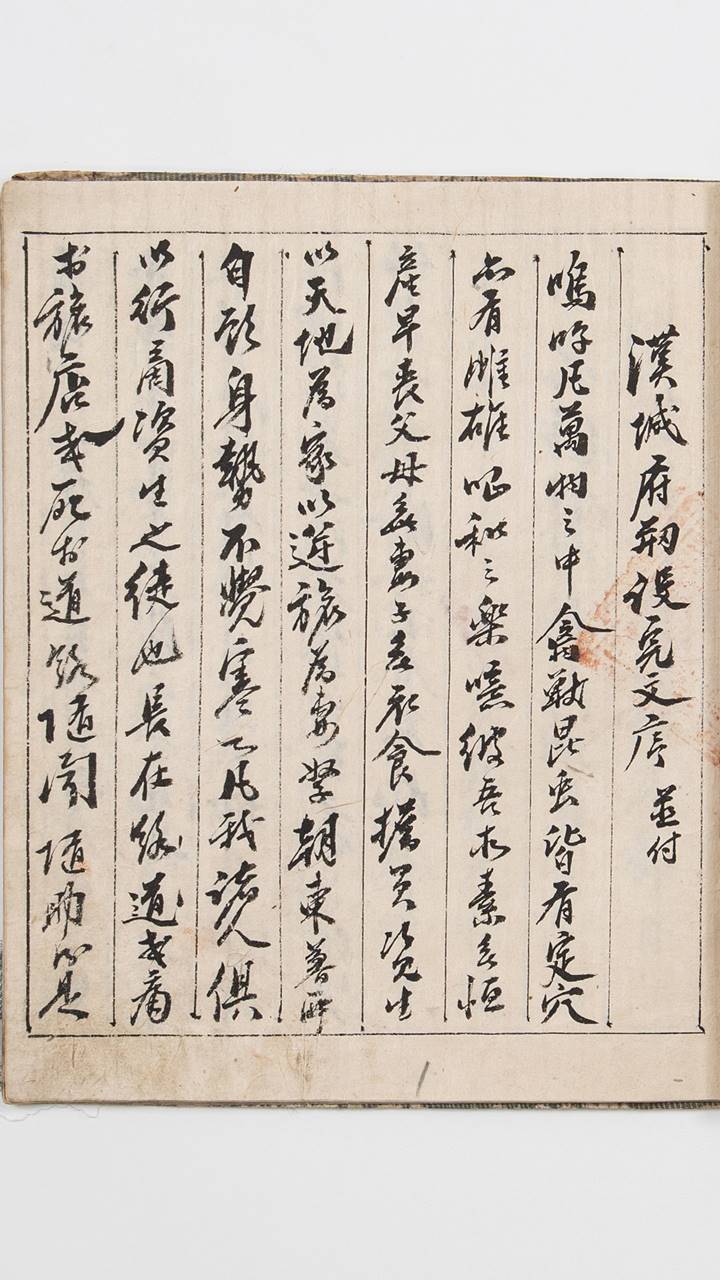 漢城府刱設完文序 並付
嗚呼凡萬物之中禽獸昆虫皆有定穴
亦有雌雄唱和之樂噫彼吾亦素无恒
産早喪父母無妻子無衣食擔負資生
以天地爲家以逆旅爲妻孥朝東暮西
自顧身勢不覺寒心凡我諸人俱
以行商資生之徒也長在路道或病
於旅店或死於道路随聞随助